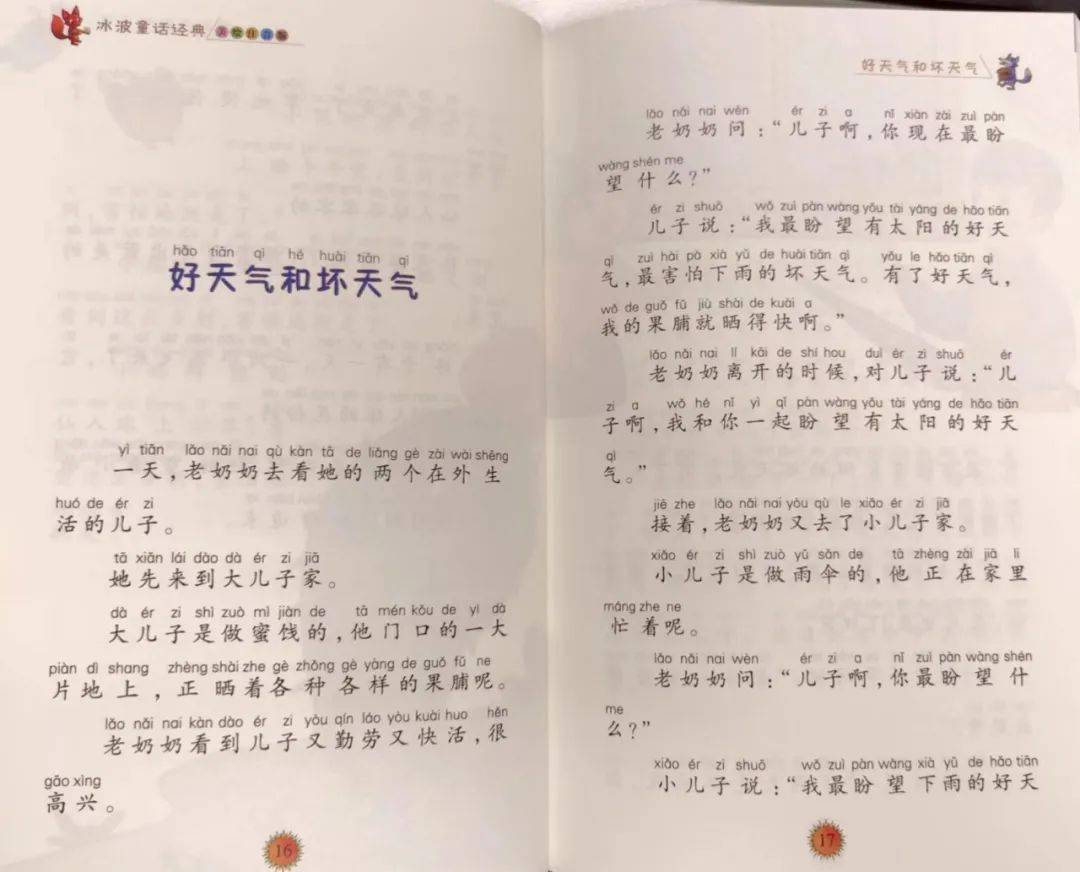 冰波童话经典 美绘注音版
hǎo tiān qì hé huài tiān qì
好天气和坏天气
yì tiān lǎo nǎi nai qù kàn tā de liǎng gè zài wài shēng
一天，老奶奶去看她的两个在外生
huó de ér zi
活的儿子。
tā xiān lái dào dà ér zi jiā
她先来到大儿子家。
dà ér zi shì zuò mì jiàn de tā mén kǒu de yí dà
大儿子是做蜜饯的，他门口的一大
piàn dì shang zhèng shài zhe gè zhǒng gè yàng de guǒ fǔ ne
片地上，正晒着各种各样的果脯呢。
lǎo nǎi nai kàn dào ér zi yòu qín láo yòu kuài huo hěn
老奶奶看到儿子又勤劳又快活，很
gāo xìng
高兴。
16
好天气和坏天气
lǎo nǎi nai wèn ér zi a nǐ xiàn zài zuì pàn
老奶奶问：“儿子啊，你现在最盼
wàng shén me
望什么？”
ér zi shuō wǒ zuì pàn wàng yǒu tài yáng de hǎo tiān
儿子说：“我最盼望有太阳的好天
qì zuì hài pà xià yǔ de huài tiān qì yǒu le hǎo tiān qì
气，最害怕下雨的坏天气。有了好天气，
wǒ de guǒ fǔ jiù shài de kuài a
我的果脯就晒得快啊。”
lǎo nǎi nai lí kāi de shí hou duì ér zi shuō ér
老奶奶离开的时候，对儿子说：“儿
zi a wǒ hé nǐ yì qǐ pàn wàng yǒu tài yáng de hǎo tiān
子啊，我和你一起盼望有太阳的好天
qì
气。”
jiē zhe lǎo nǎi nai yòu qù le xiǎo ér zi jiā
接着，老奶奶又去了小儿子家。
xiǎo ér zi shì zuò yǔ sǎn de tā zhèng zài jiā li
小儿子是做雨伞的，他正在家里
máng zhe ne
忙着呢。
lǎo nǎi nai wèn ér zi a nǐ zuì pàn wàng shén
老奶奶问：“儿子啊，你最盼望什
me
么？”
xiǎo ér zi shuō wǒ zuì pàn wàng xià yǔ de hǎo tiān
小儿子说：“我最盼望下雨的好天
17